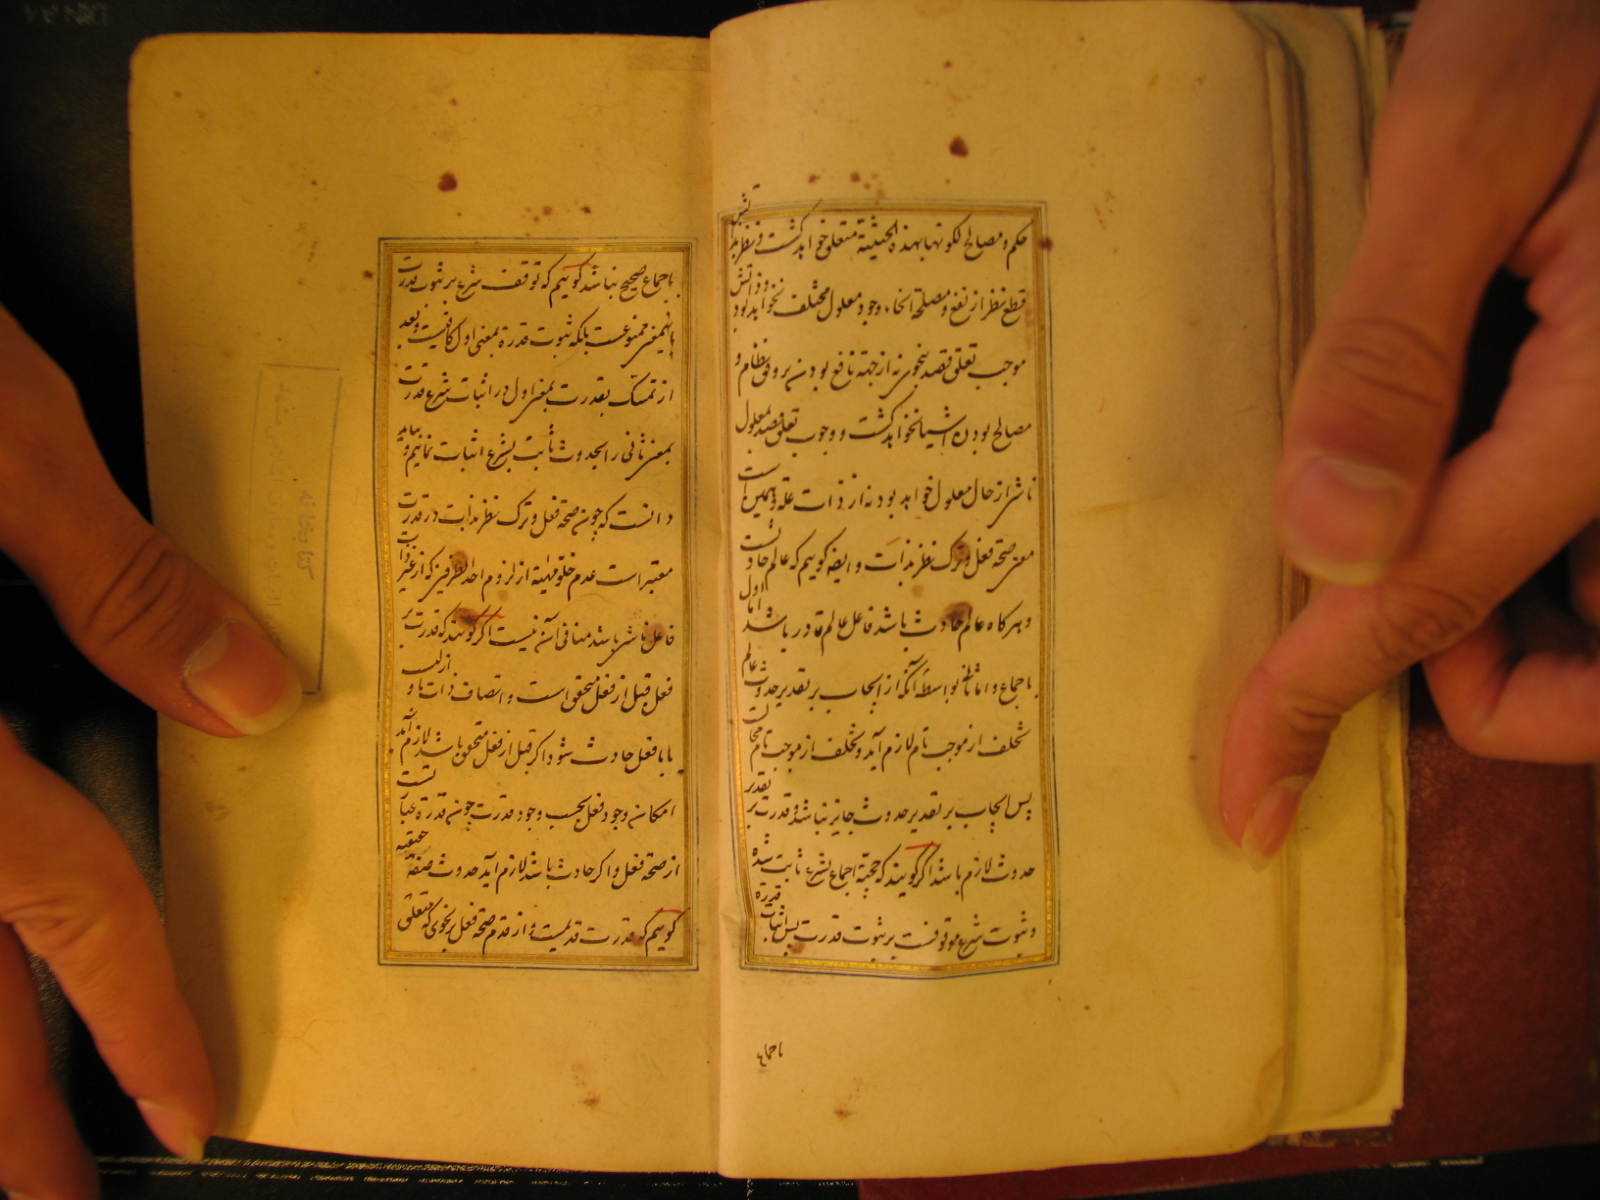 حکم و مصالح لکونها بهذه الحیثیة متعلق خواهد گشت و نظر بذاتش
قطع نظر از نفع و مصلحة انحاء وجود معلول مختلف نخواهد بود و ذاتش
موجب تعلق قصد بنحوی نه از جهة نافع بودن بر وفق نظام و
مصالح بودن اشیا نخواهد گشت و وجوب تعلق قصد بمعلول
ناشی از حال معلول خواهد بود نه از ذات علة و همین است
معنی صحة فعل و ترک نظر بذات و ایضا گوییم که عالم حادثست
و هرگاه عالم حادث باشد فاعل عالم قادر باشد اما اول
باجماع و اما ثانی بواسطه آنکه از ایجاب بر تقدیر حدوث عالم
تخلف از موجب تام لازم آید و تخلف از موجب تام محالست
پس ایجاب بر تقدیر حدوث جایز نباشد و قدرت بر تقدیر
حدوث لازم باشد اگر گویند که حجیة اجماع بشرع ثابت شده
و ثبوت شرع موقوفست بر ثبوت قدرت پس اثبات قدرة
باجماع
باجماع صحیح نباشد گوییم که توقف شرع بر ثبوت قدرت
باینمعنی ممنوعست بلکه ثبوت قدرة بمعنی اول کافیست و بعد
از تمسک بقدرت بمعنی اول در اثبات شرع قدرت
بمعنی ثانی را بحدوث ثابت بشرع اثبات نماییم و بباید
دانست که چون صحة فعل و ترک نظر بذات در قدرت
معتبر است عدم خلو ماهیة از لزوم احد الطرفین که از غیر ذات
فاعل ناشی باشد منافی آن نیست اگر گویند که قدرت بر
فعل قبل از فعل متحقق است و اتصاف ذات باو ازلیست
یا با فعل حادث شود اگر قبل از فعل متحقق باشد لازم آید
امکان وجود فعل بحسب وجود قدرت چون قدرة عبارتست
از صحة فعل و اگر حادث باشد لازم آید حدوث صفة حقیقیه
گوییم که قدرت قدیمست و از قدم صحة فعل بنحوی که متعلق